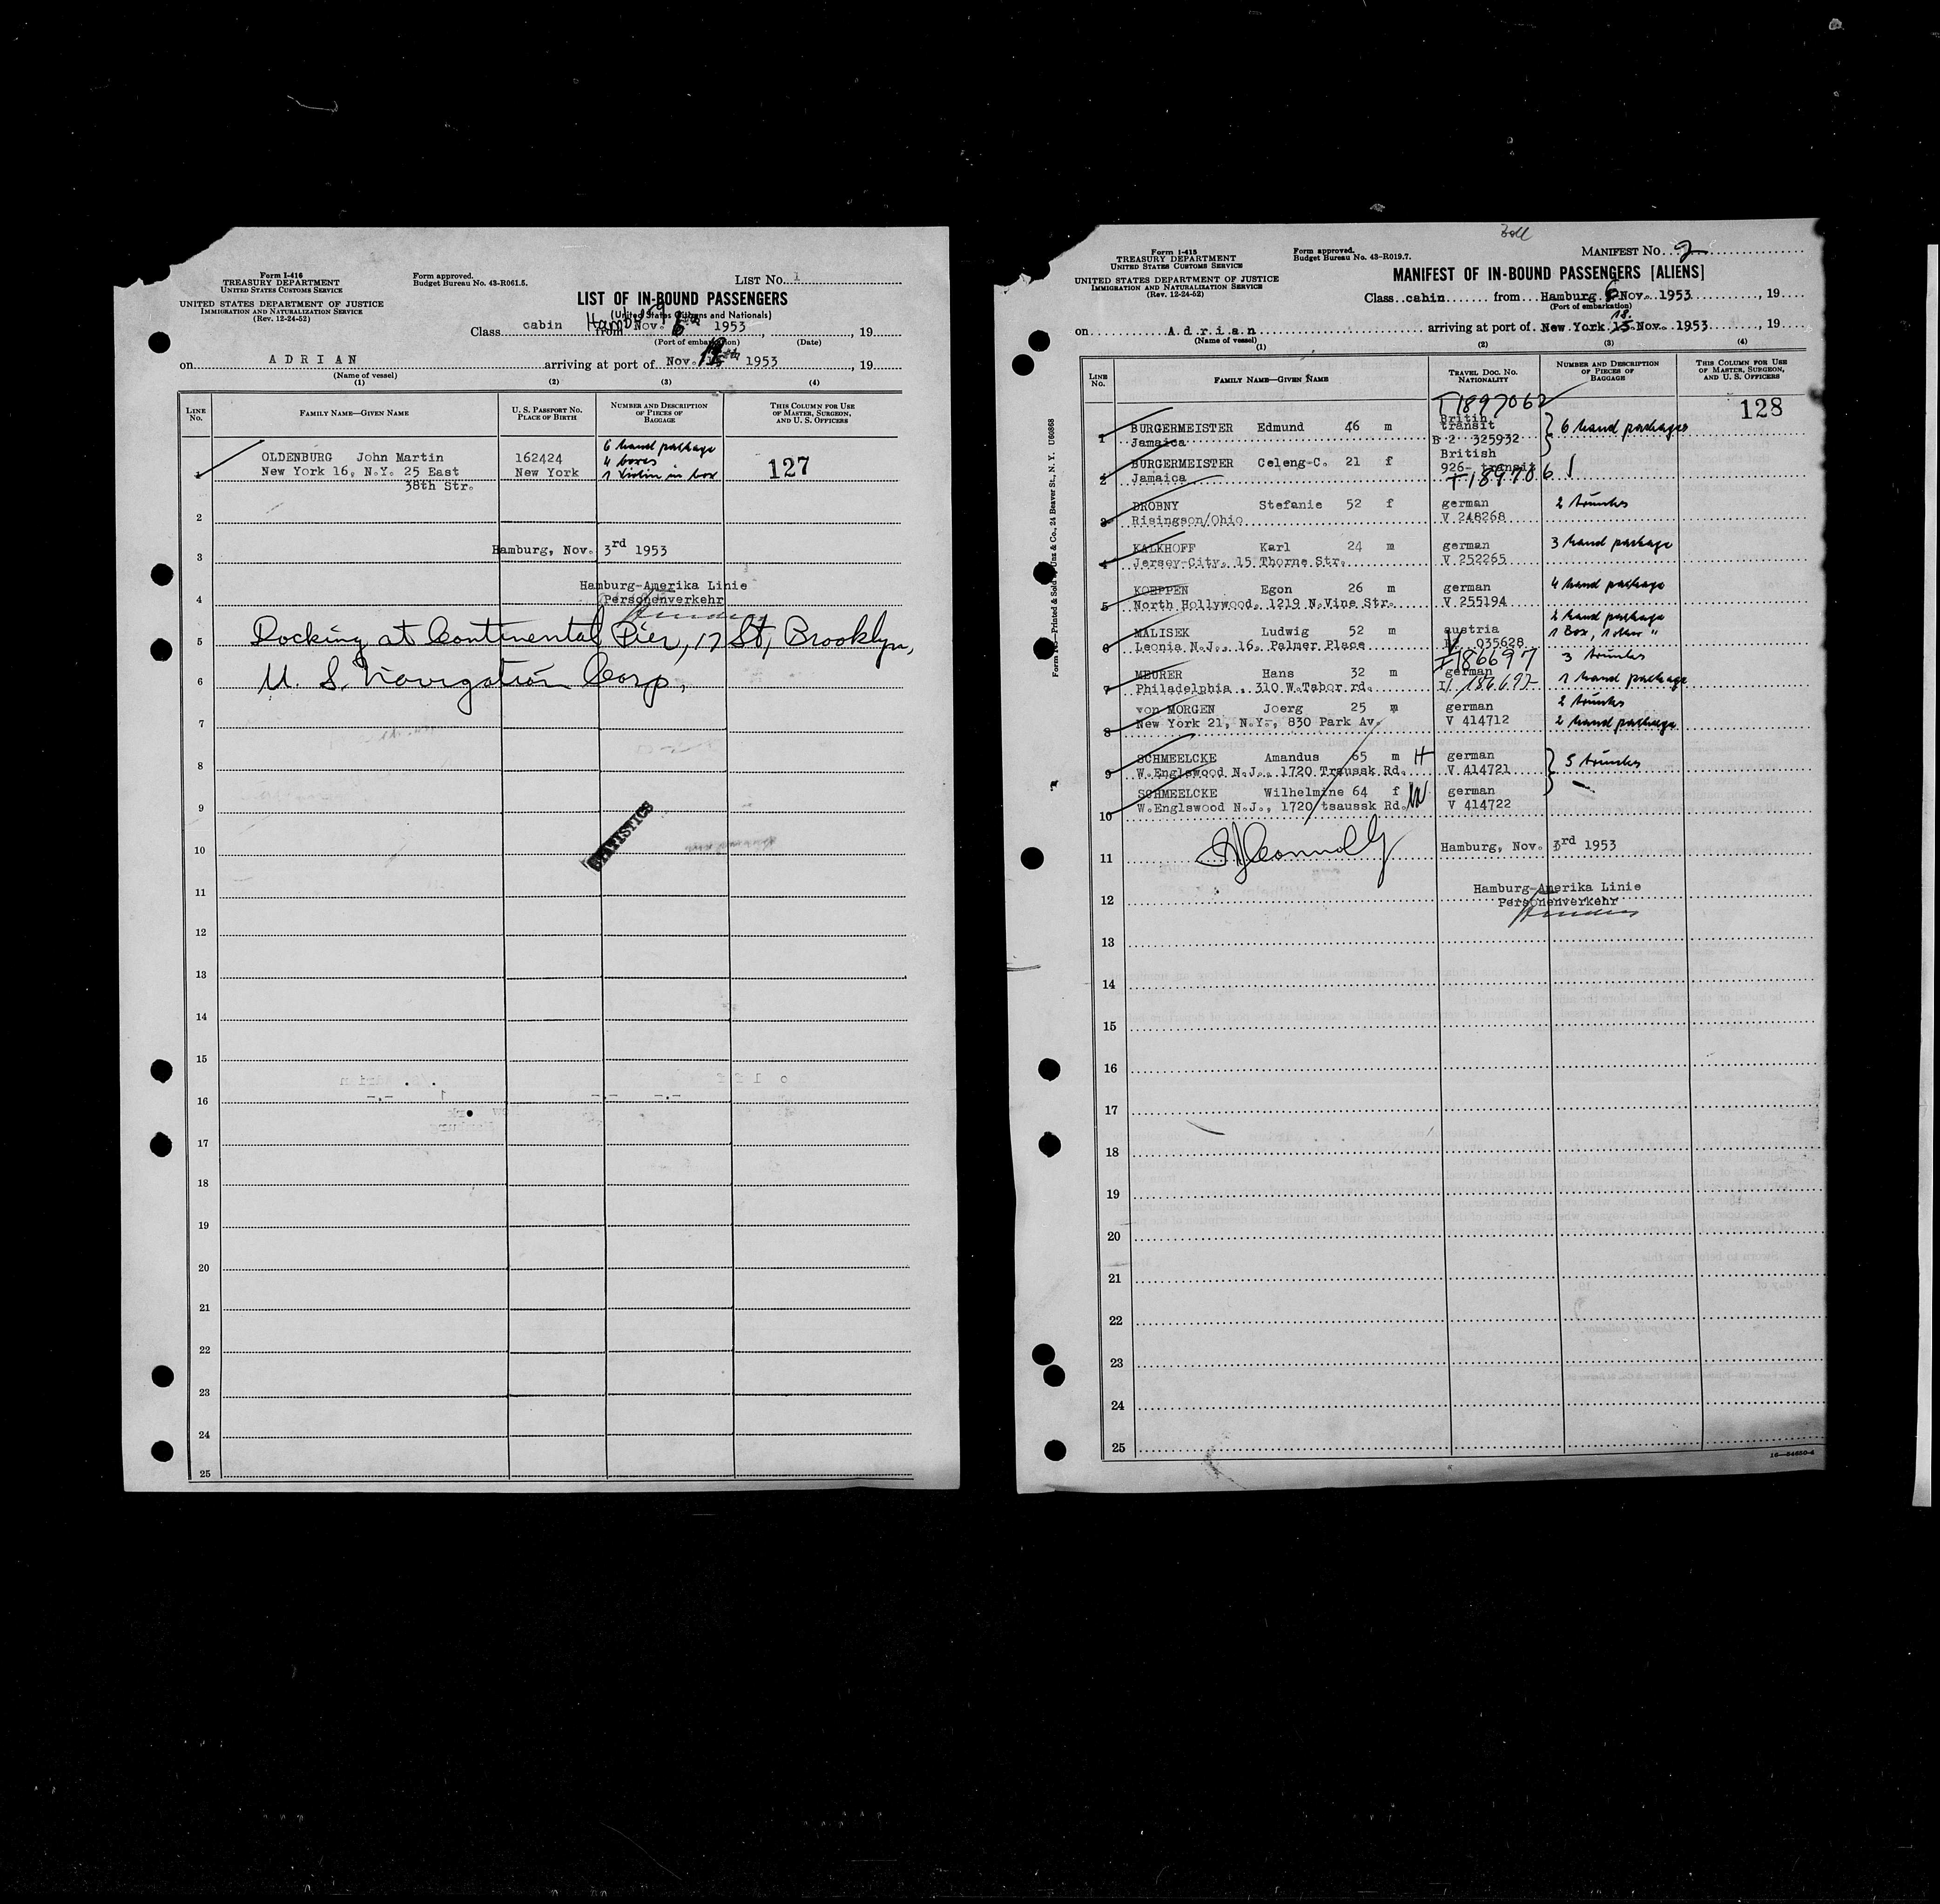 Form I-416
TREASURY DEPARTMENT
UNITED STATES CUSTOMS SERVICE
UNITED STATES DEPARTMENT OF JUSTICE
IMMIGRATION AND NATURALIZATION SERVICE
(Rev. 12-24-52)
Form approved.
Budget Bureau No. 43-R061.5.
LIST No. 1
LIST OF IN-BOUND PASSENGERS
(United States Citizens and Nationals)
Class cabin from Hamburg Nov. 6 1953, 19
(Port of embarkation) (Date)
on ADRIAN arriving at port of Nov. 1953, 19
(Name of vessel)
(1) (2) (3) (4)
LINE No. FAMILY NAME—GIVEN NAME U. S. PASSPORT NO. PLACE OF BIRTH NUMBER AND DESCRIPTION OF PIECES OF BAGGAGE THIS COLUMN FOR USE OF MASTER, SURGEON, AND U. S. OFFICERS
6 hand package
OLDENBURG John Martin 162424 4 boxes
1 New York 16, N.Y. 25 East New York 1 Violin in box 127
38th Str.
2
Hamburg, Nov. 3rd 1953
3
Hamburg-Amerika Linie
4 Personenverkehr
5 Docking at Continental Pier, 17 St, Brooklyn,
6 U. S. Navigation Corp,
7
8
9
STATISTICS
10
11
12
13
14
15
16
17
18
19
20
21
22
23
24
25
Zoll
Form I-415
TREASURY DEPARTMENT
UNITED STATES CUSTOMS SERVICE
UNITED STATES DEPARTMENT OF JUSTICE
IMMIGRATION AND NATURALIZATION SERVICE
(Rev. 12-24-52)
Form approved.
Budget Bureau No. 43-R019.7.
MANIFEST No. 2
MANIFEST OF IN-BOUND PASSENGERS [ALIENS]
Class cabin from Hamburg 6 Nov. 1953, 19
(Port of embarkation)
on Adrian arriving at port of New York 18. 15 Nov. 1953, 19
(Name of vessel)
(1) (2) (3) (4)
LINE No. FAMILY NAME—GIVEN NAME TRAVEL DOC. NO. NATIONALITY NUMBER AND DESCRIPTION OF PIECES OF BAGGAGE THIS COLUMN FOR USE OF MASTER, SURGEON, AND U. S. OFFICERS
T1897062 128
Britih
BURGERMEISTER Edmund 46 m transit 6 hand packages
1 Jamaica B 2 325932
British
BURGERMEISTER Celeng-C. 21 f 926- transit
2 Jamaica T189706
DROBNY Stefanie 52 f german 2 trunks
3 Risingson/Ohio V 248268
KALKHOFF Karl 24 m german 3 hand package
4 Jersey-City, 15 Thorne Str. V 252265
KOEPPEN Egon 26 m german 4 hand package
5 North Hollywood, 1219 N.Vine Str. V 255194
2 hand package
MALISEK Ludwig 52 m austria 1 Box, 1 other "
6 Leonia N.J., 16, Palmer Place V 035628
I186697 3 trunks
MEURER Hans 32 m german 1 hand package
7 Philadelphia, 310 W.Tabor rd. 186697
von MORGEN Joerg 25 m german 2 trunks
8 New York 21, N.Y., 830 Park Av. V 414712 2 hand package
SCHMEELCKE Amandus 65 m H german 5 trunks
9 W.Englswood N.J., 1720 Traussk Rd. V 414721
SCHMEELCKE Wilhelmine 64 f W german
10 W.Englswood N.J., 1720 tsaussk Rd. V 414722
11 Connolly Hamburg, Nov. 3rd 1953
Hamburg-Amerika Linie
12 Personenverkehr
13
14
15
16
17
18
19
20
21
22
23
24
25
16—54650-4